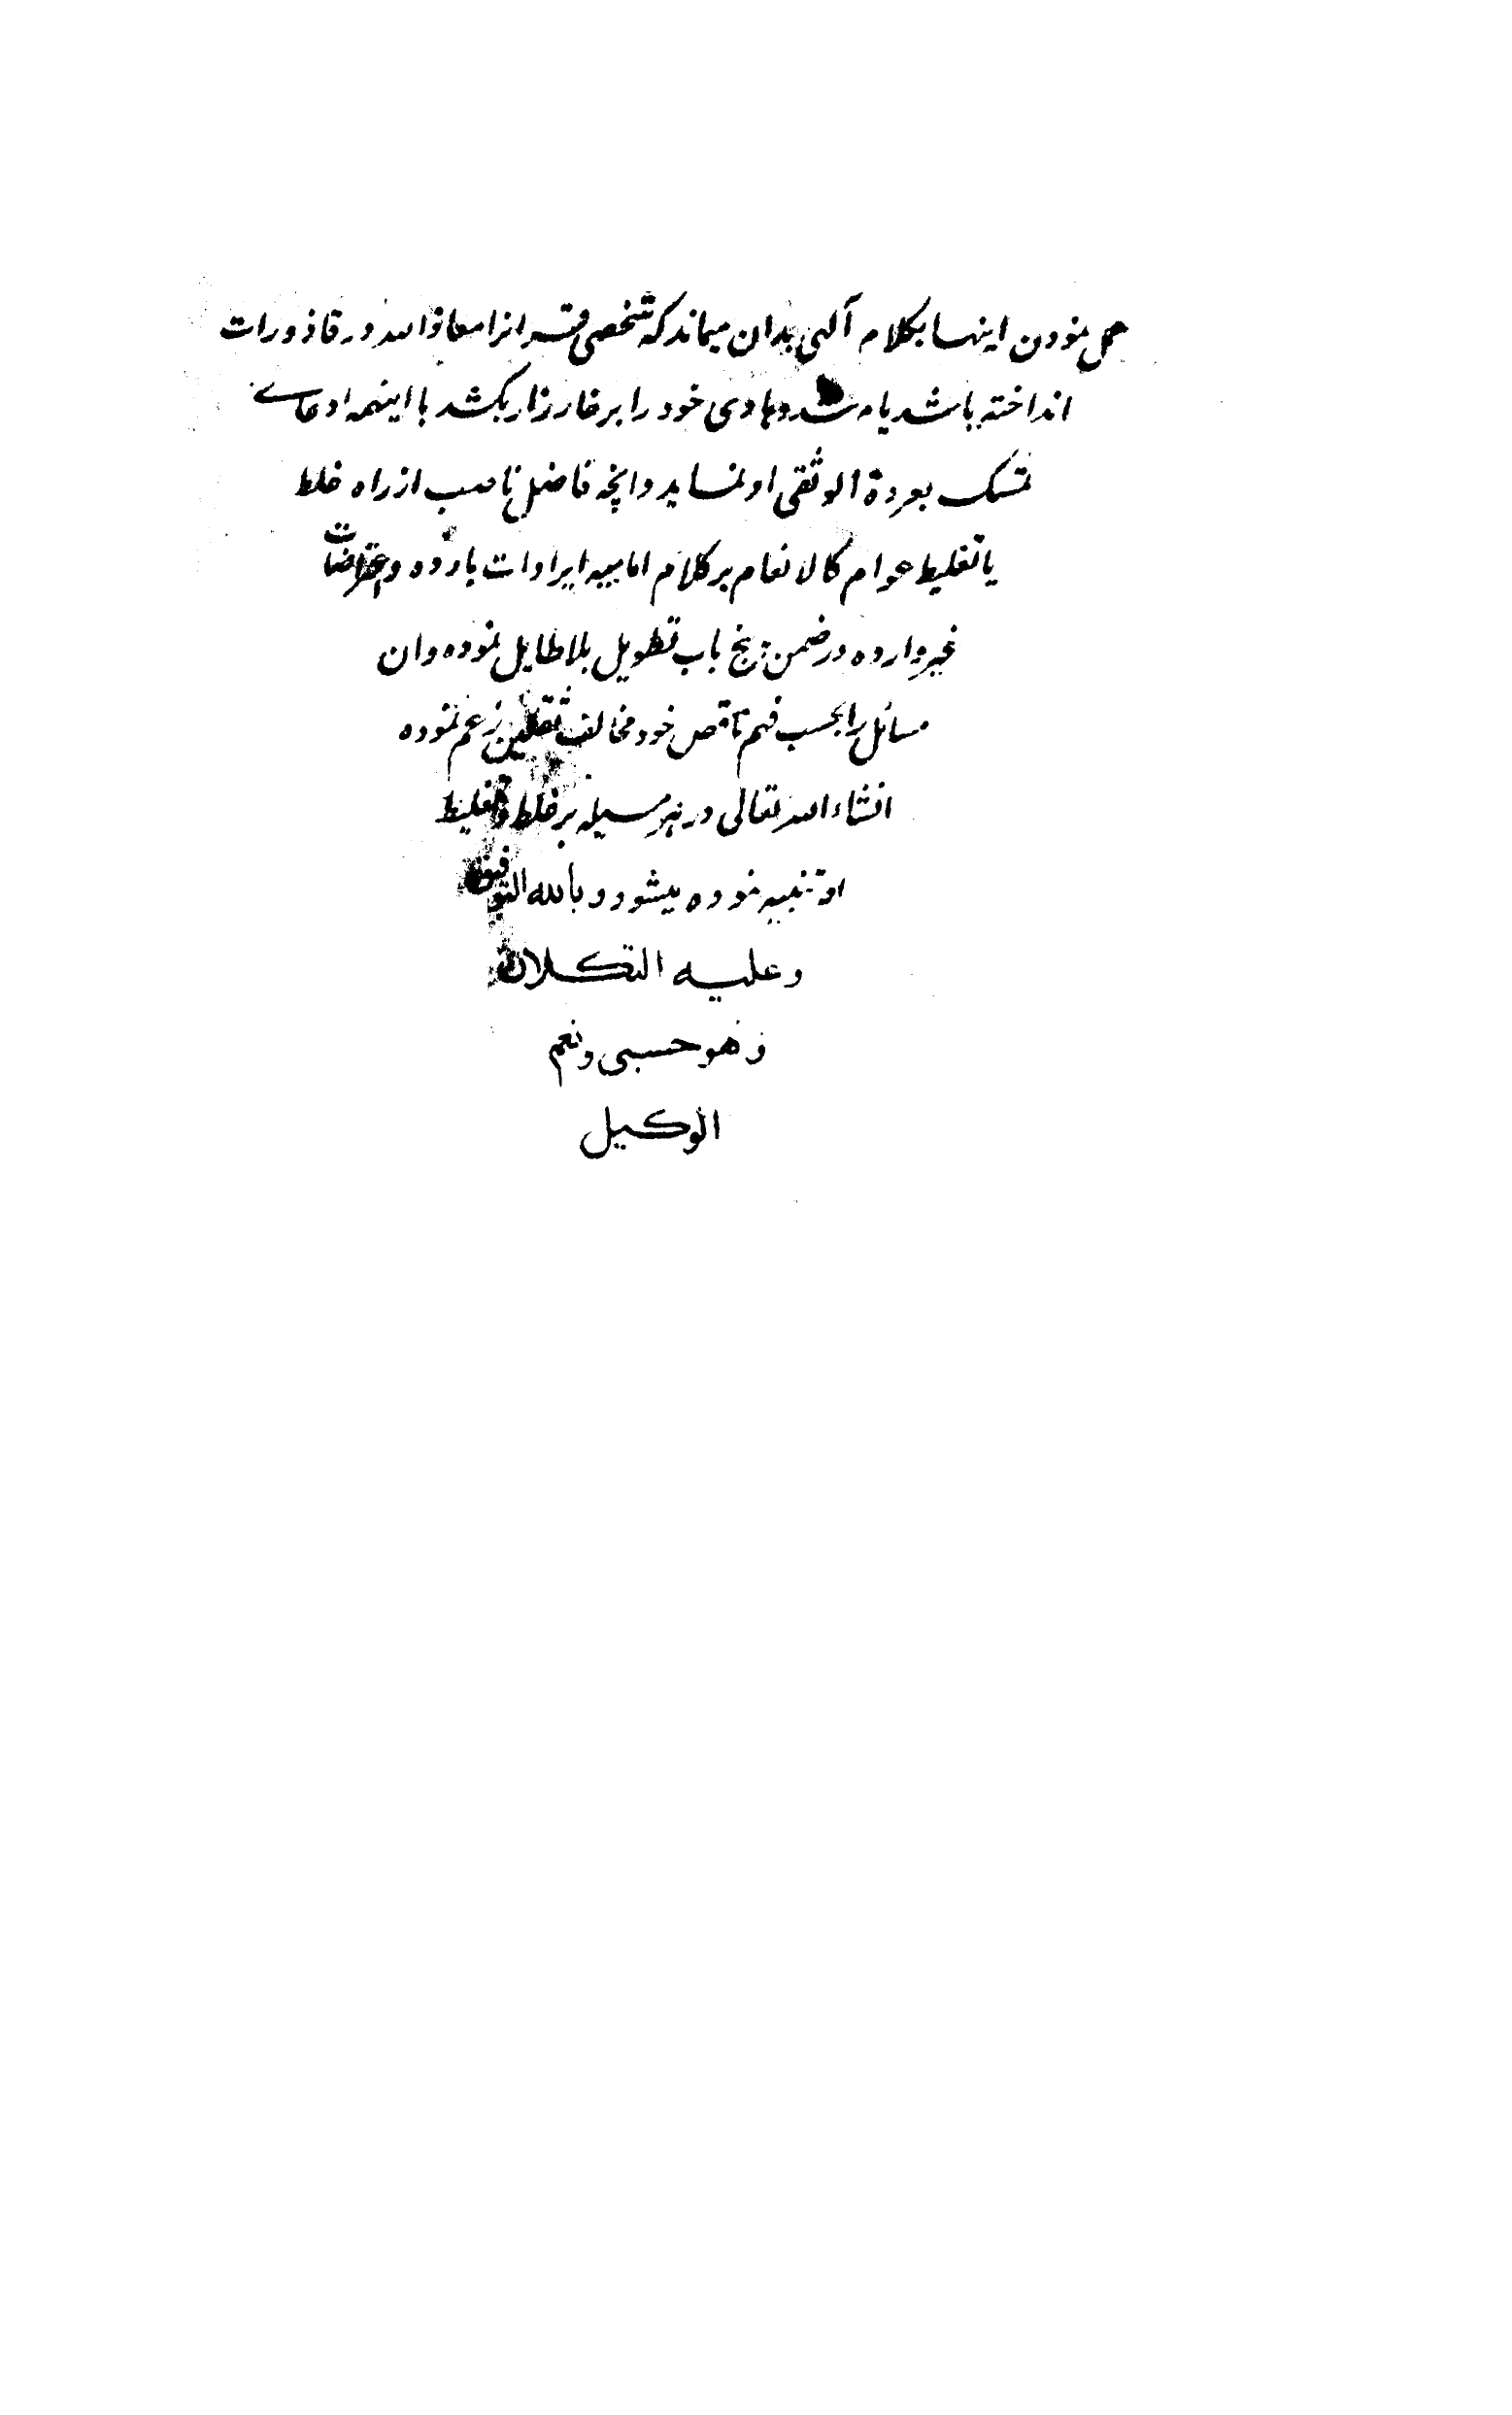 عمل نمودن اینها بکلام آلهی بدان میماند که شخصی قرانرا معاذالله در قاذورات
انداخته باشد یا مرشد و هادی خود را بر خار زار بکشد با اینهمه ادعای
تمسک بعروة الوثقی او نماید و انچه فاضل ناصب از راه غلط
یا تغلیط عوام کالانعام بر کلام امامیه ایرادات بارده و اعتراضات
غیر وارده در ضمن پنج باب تطویل بلا طایل نموده وان
مسائل را بحسب فهم ناقص خود مخالف ثقلین زعم نموده
انشاءالله تعالی در هر مسیله بر غلط و تغلیط
او تنبیه نموده میشود و بالله التوفیق
وعلیه التکلان
وهو حسبی ونعم
الوکیل